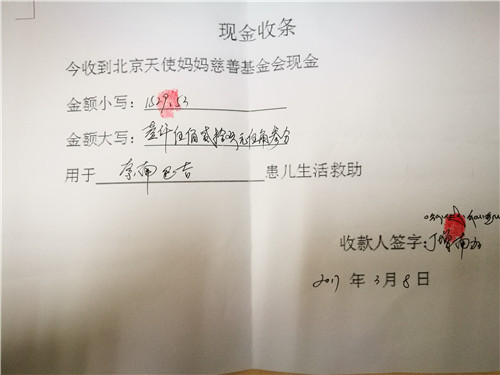 现金收条
今收到北京天使妈妈慈善基金会现金
金额小写：1529.53
金额大写：壹仟伍佰贰拾玖元伍角叁分
用于 患儿生活救助
收款人签字：
2017 年 3 月 8 日